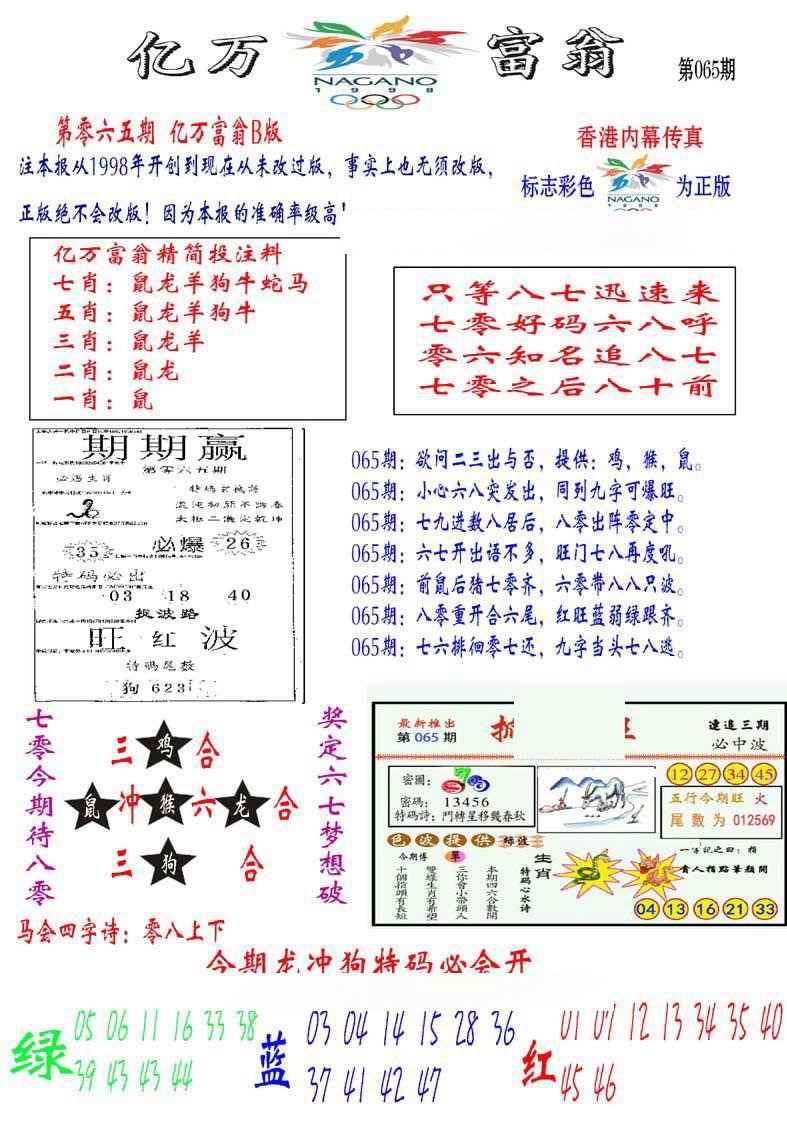 亿万富翁
NAGANO
1998
第065期
第零六五期 亿万富翁B版
香港内幕传真
注本报从1998年开创到现在从未改过版，事实上也无须改版，
标志彩色
NAGANO
为正版
正版绝不会改版！因为本报的准确率级高
亿万富翁精简投注料
七肖：鼠龙羊狗牛蛇马
五肖：鼠龙羊狗牛
三肖：鼠龙羊
二肖：鼠龙
一肖：鼠
只等八七迅速来
七零好码六八呼
零六知名追八七
七零之后八十前
期期赢
第零六五期
必遇生肖
必爆
35
26
特码必出
03 18 40
捉波路
旺红波
特码尾数
狗 623
065期：欲问二三出与否，提供：鸡，猴，鼠。
065期：小心六八突发出，同列九字可爆旺。
065期：七九进数八居后，八零出阵零定中。
065期：六七开出语不多，旺门七八再度吼。
065期：前鼠后猪七零齐，六零带八八只波。
065期：八零重开合六尾，红旺蓝弱绿跟齐。
065期：七六排徊零七还，九字当头七八逃。
七零今期待八零
三 鸡 合
鼠 冲 猴 六 龙 合
三 狗 合
奖定六七梦想破
最新推出
第 065 期
速追三期
必中波
密圖：
密碼： 13456
特码詩：鬥轉星移幾春秋
12 27 34 45
五行今期旺 火
尾数为 012569
色波提供
綠波
今期傳
單
十個指頭有長短
雙條生肖有希望
三你會小帶頭人
本期四六合數開
特码心水诗
生肖
貴人指點筆類開
04 13 16 21 33
马会四字诗：零八上下
今期龙冲狗特码必会开
绿
05 06 11 16 33 38
39 43 43 44
蓝
03 04 14 15 28 36
37 41 42 47
红
01 07 12 13 34 35 40
45 46